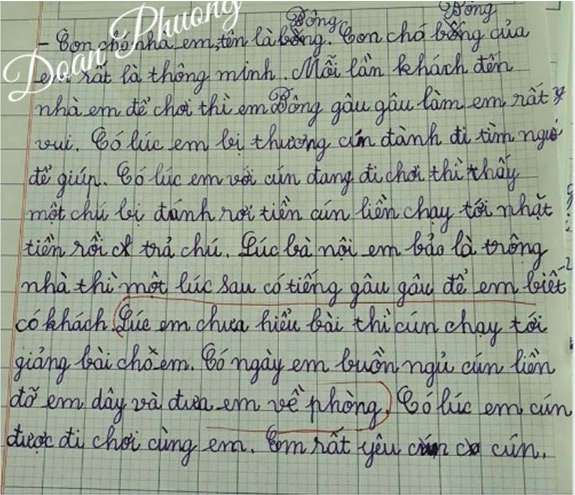 Bông Bông
- Con chó nhà em, tên là bông. Con chó bông của
em rất là thông minh. Mỗi lần khách đến
nhà em để chơi thì em Bông gâu gâu làm em rất
vui. Có lúc em bị thương cún đành đi tìm người
để giúp. Có lúc em với cún đang đi chơi thì thấy
một chú bị đánh rơi tiền cún liền chạy tới nhặt
tiền rồi trả chú. Lúc bà nội em bảo là trông
nhà thì một lúc sau có tiếng gâu gâu để em biết
có khách. Lúc em chưa hiểu bài thì cún chạy tới
giảng bài cho em. Có ngày em buồn ngủ cún liền
đỡ em dây và đưa em về phòng. Có lúc em cún
được đi chơi cùng em. Em rất yêu cún.
Doan Phuong